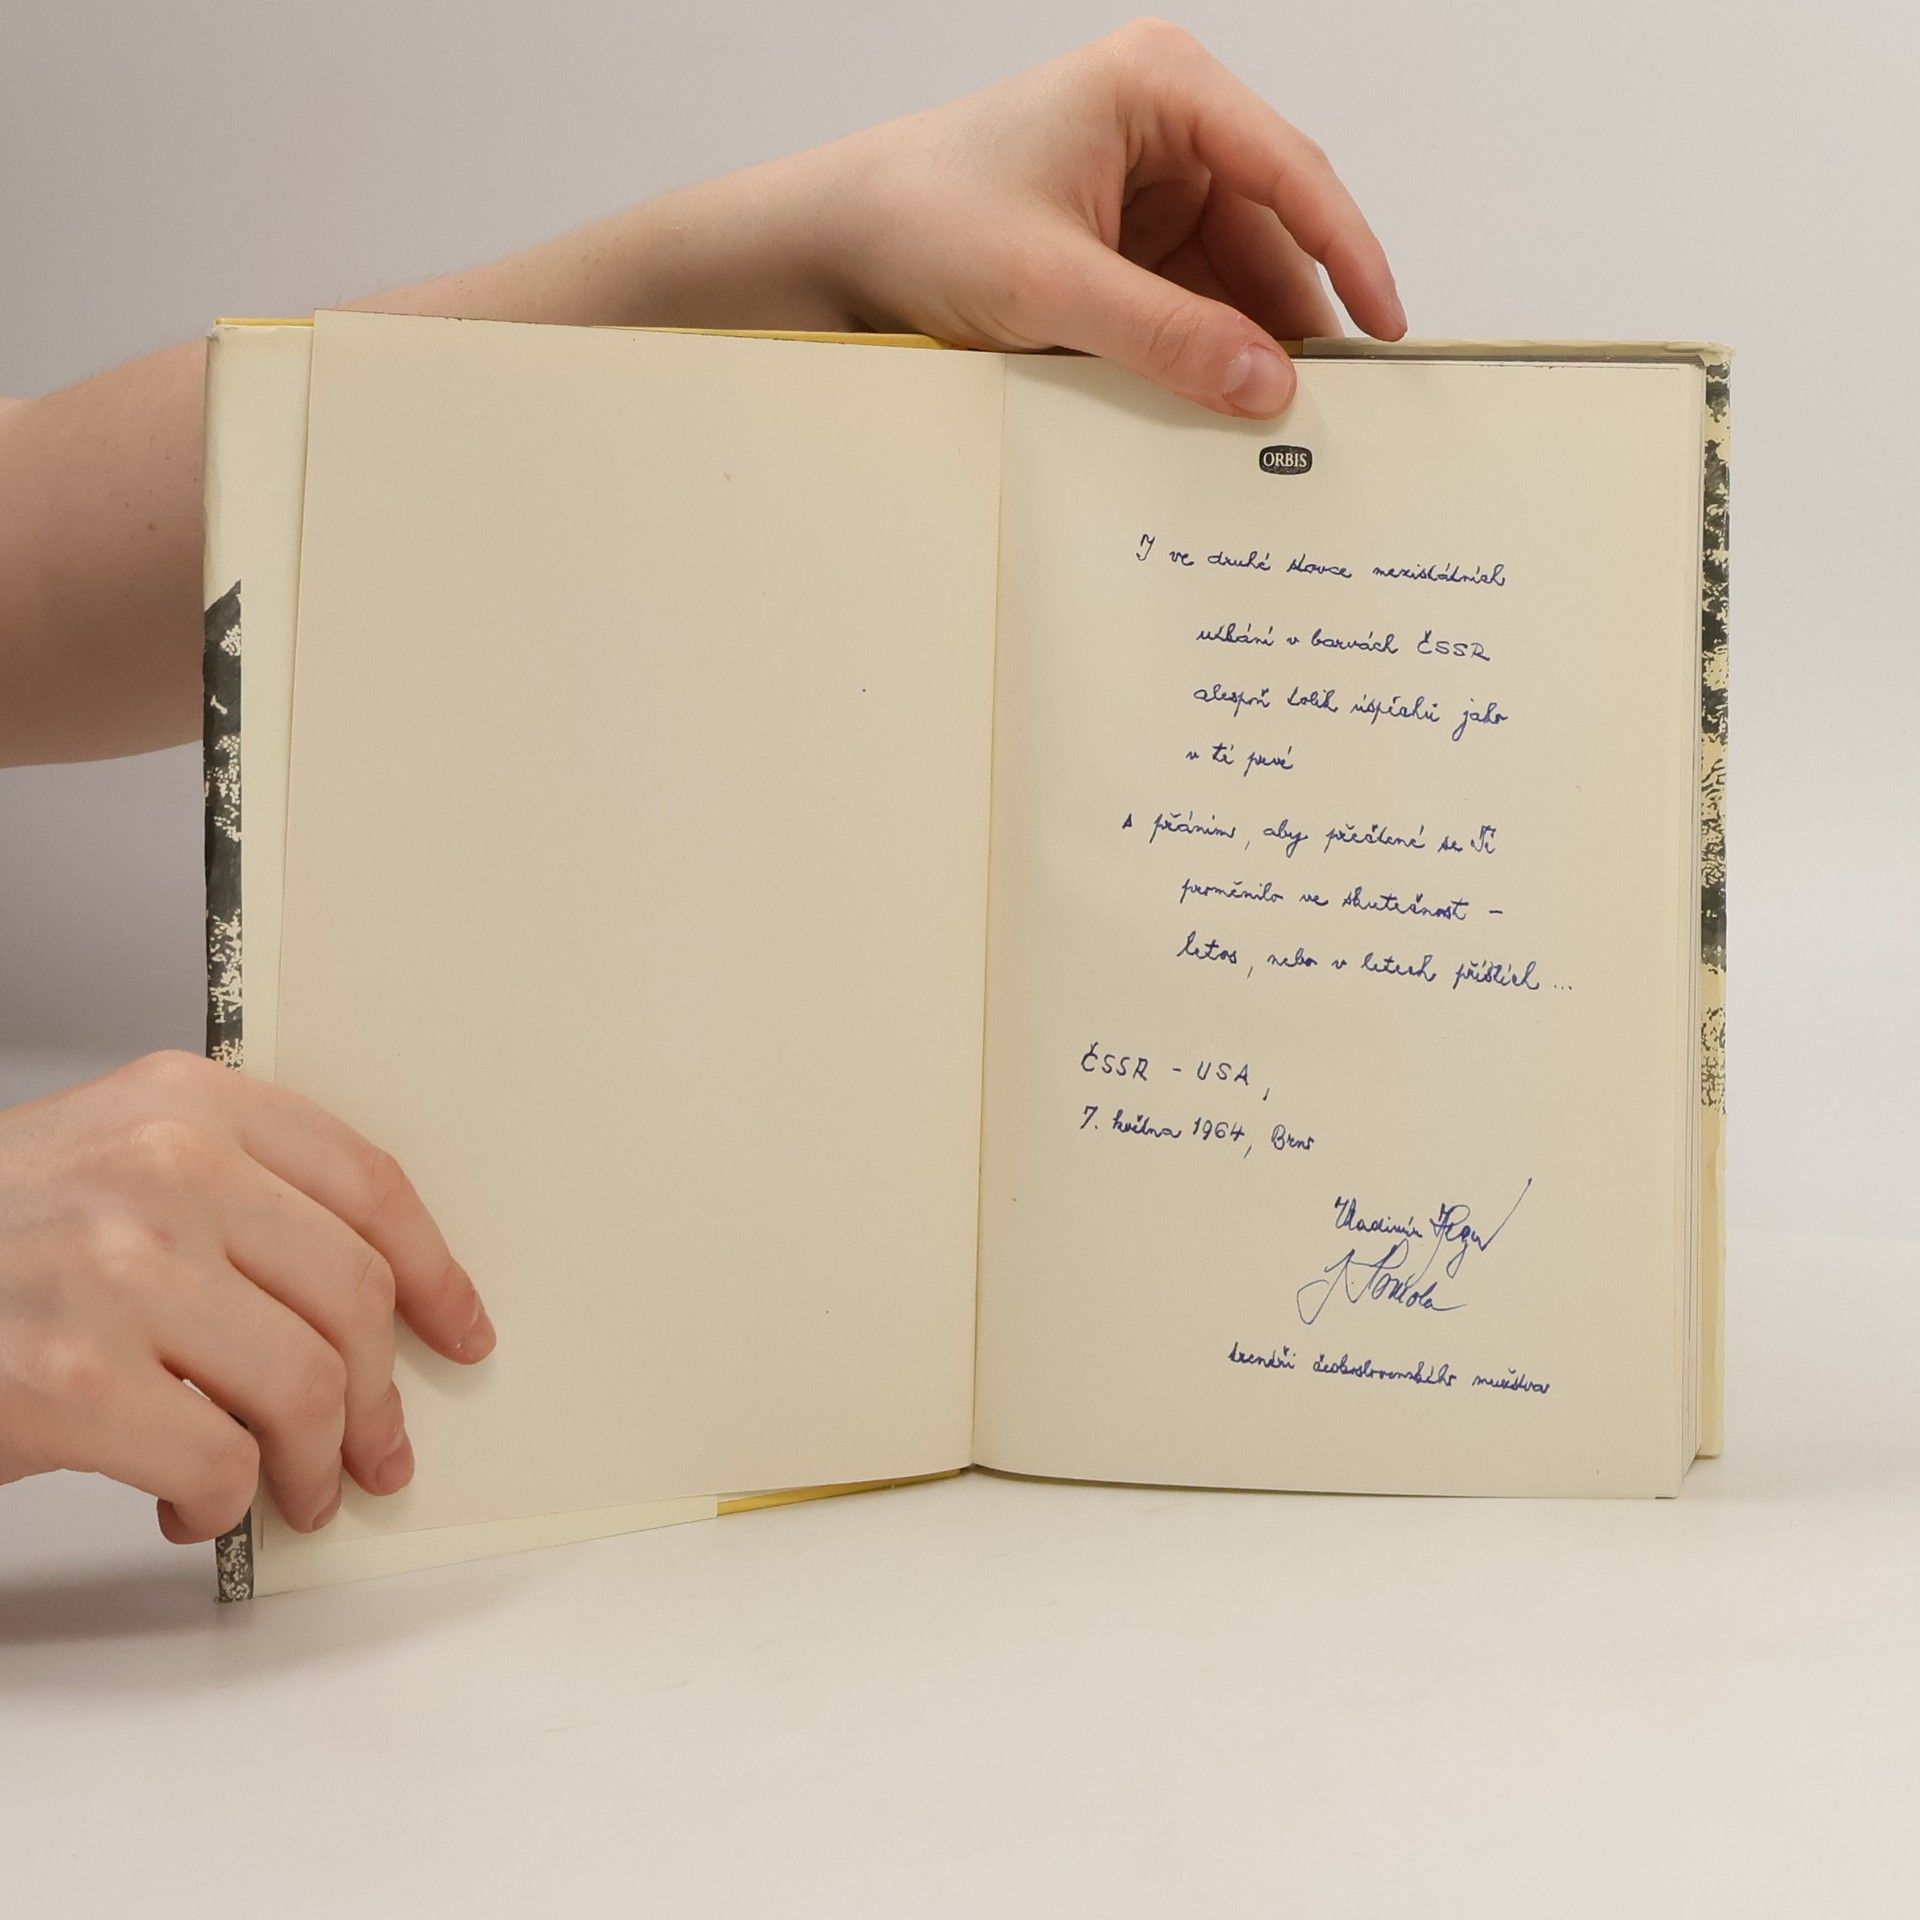 ORBIS
I ve druhé stovce mezistátních
utkání v barvách ČSSR
alespoň tolik úspěchů jako
v té prvé
s přáním, aby přečtené se Ti
proměnilo ve skutečnost -
letos, nebo v letech příštích ...
ČSSR - USA,
7. května 1964, Brno
Vladimír
trenéři československého mužstva